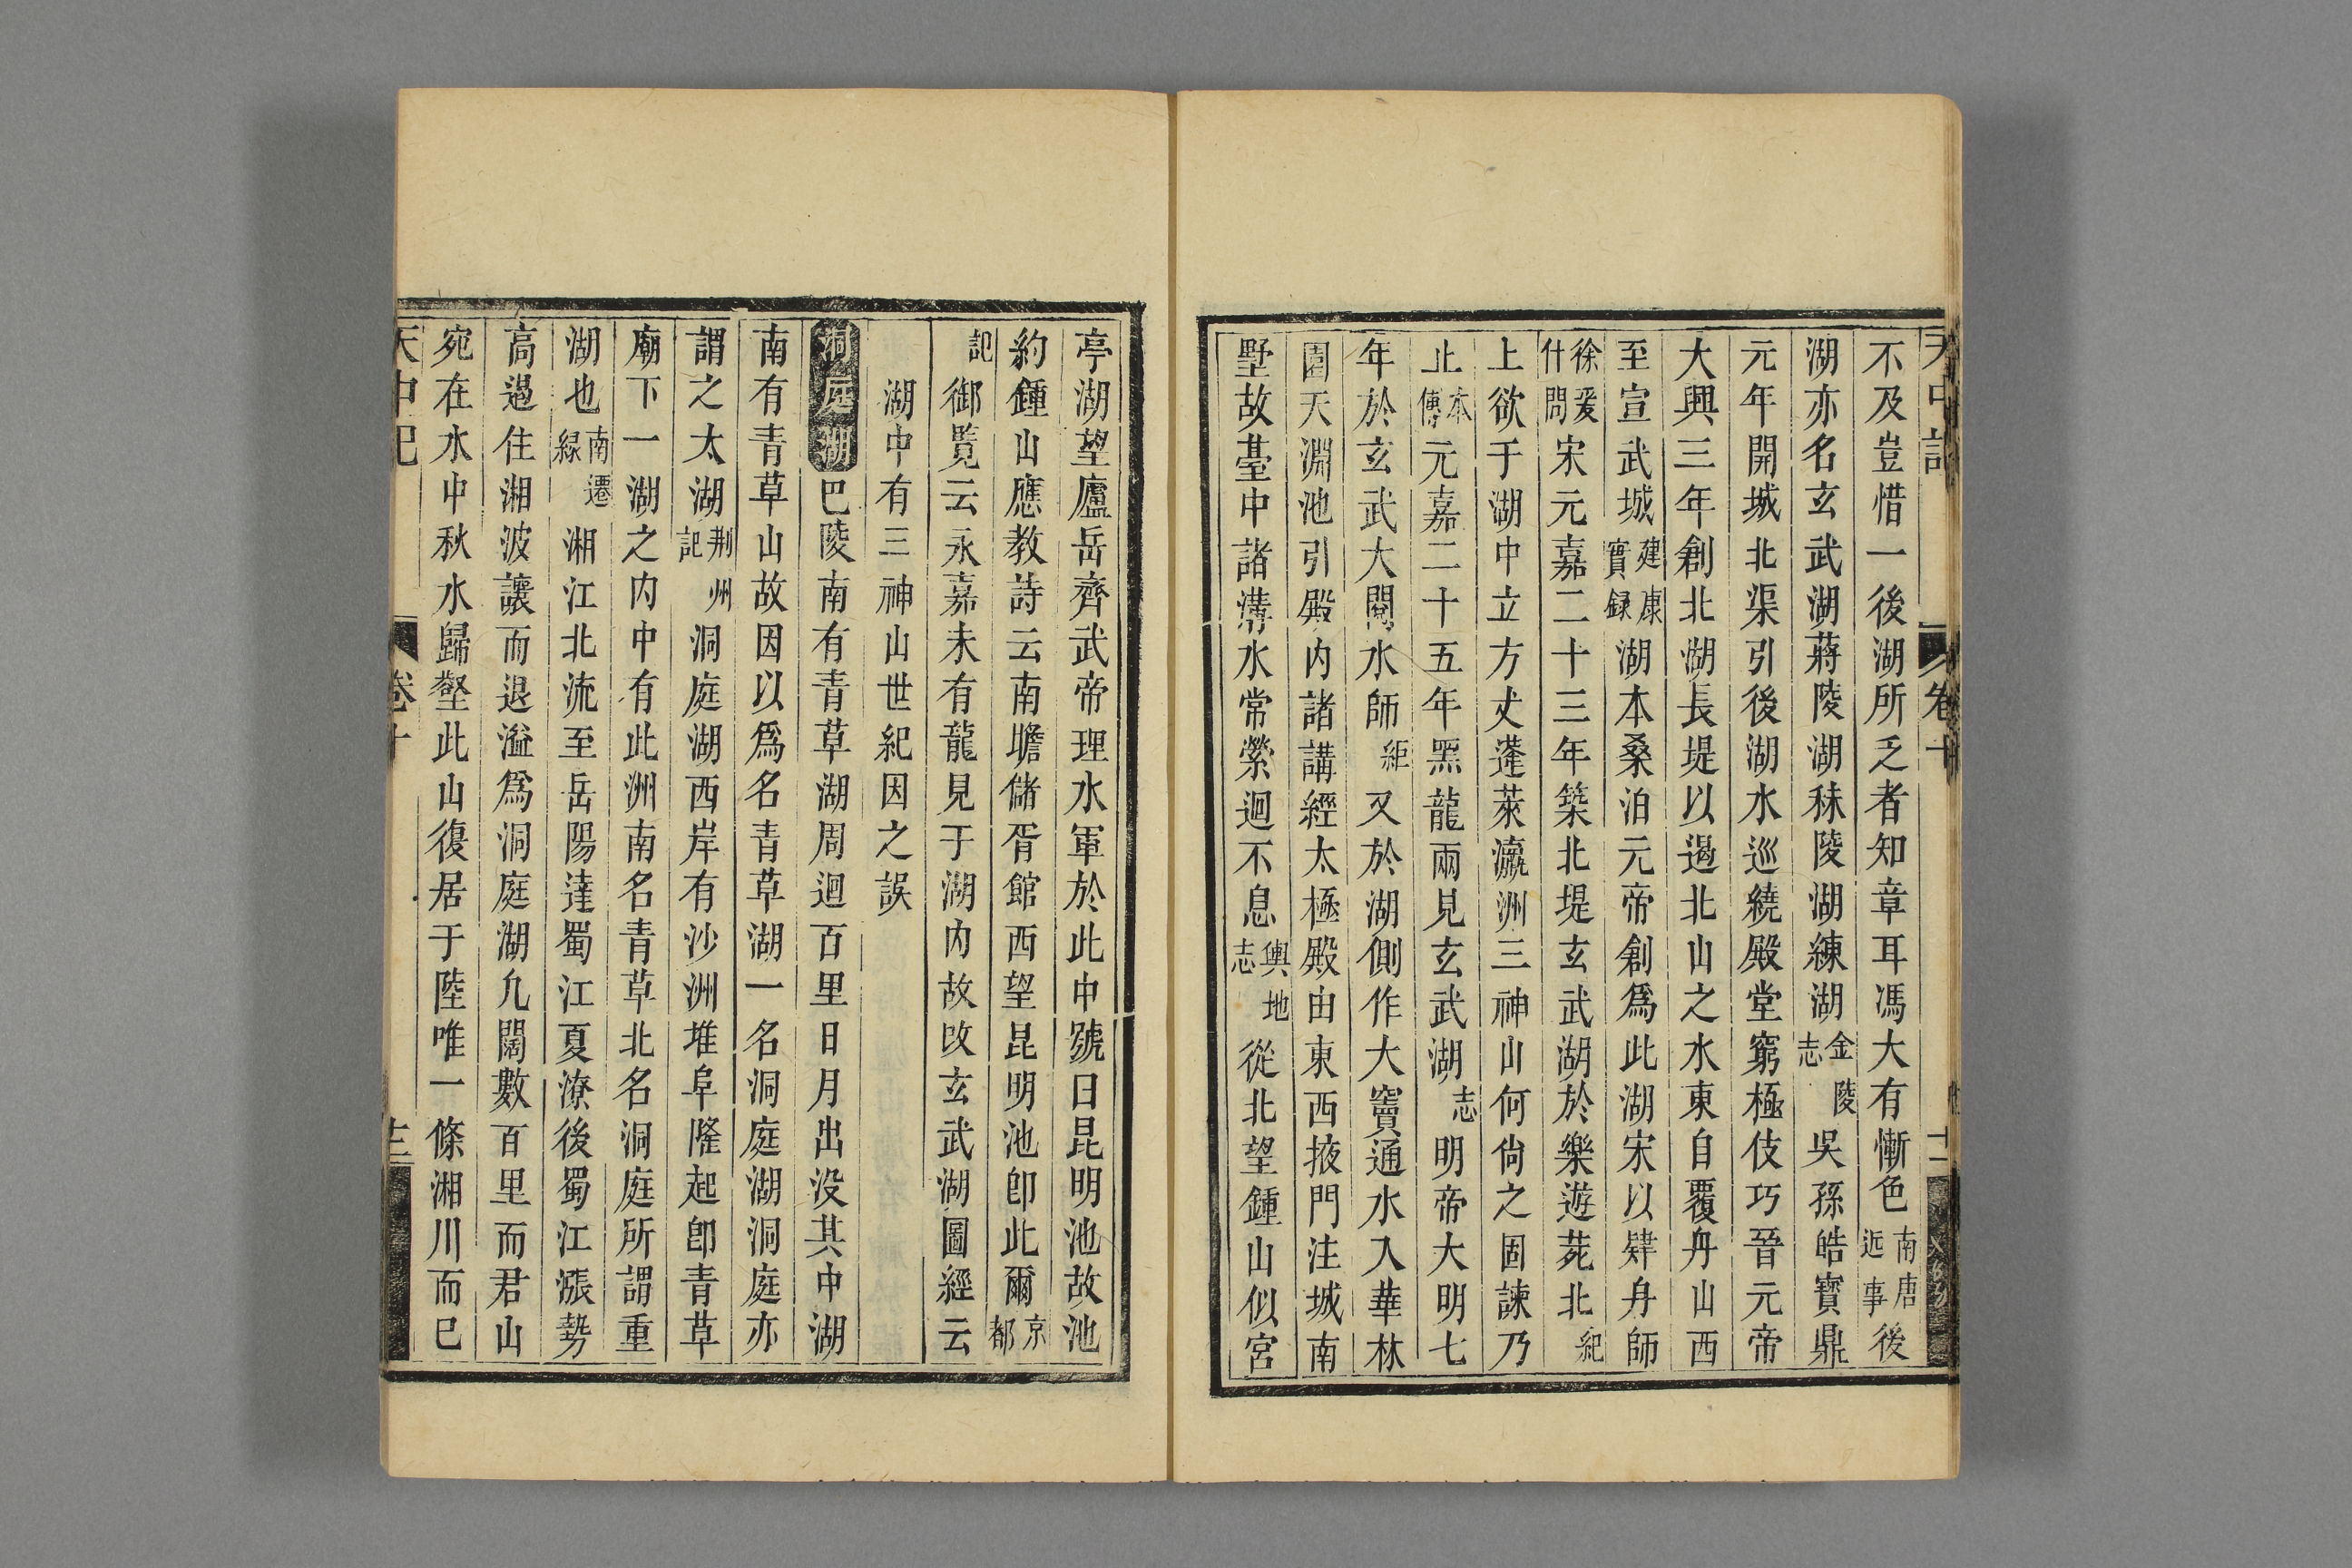 天中記
卷十
十二
不及豈惜一後湖所乏者知章耳馮大有慚色南唐近事後
湖亦名玄武湖蔣陵湖秣陵湖練湖金陵志吳孫皓寶鼎
元年開城北渠引後湖水巡繞殿堂窮極伎巧晉元帝
大興三年創北湖長堤以遏北山之水東自覆舟山西
至宣武城建康實録湖本桑泊元帝創爲此湖宋以肄舟師
徐爰什問宋元嘉二十三年築北堤玄武湖於樂遊苑北紀
上欲于湖中立方丈蓬萊瀛洲三神山何尙之固諫乃
止本傳元嘉二十五年黑龍兩見玄武湖志明帝大明七
年於玄武大閱水師紀又於湖側作大竇通水入華林
園天淵池引殿内諸講經太極殿由東西掖門注城南
墅故臺中諸溝水常縈迴不息輿地志從北望鍾山似宮
亭湖望廬岳齊武帝理水軍於此中號曰昆明池故池
約鍾山應教詩云南瞻儲胥館西望昆明池卽此爾京都
記御覧云永嘉未有龍見于湖内故改玄武湖圖經云
湖中有三神山世紀因之誤
洞庭湖巴陵南有青草湖周迴百里日月出没其中湖
南有青草山故因以爲名青草湖一名洞庭湖洞庭亦
謂之太湖荆州記洞庭湖西岸有沙洲堆阜隆起卽青草
廟下一湖之内中有此洲南名青草北名洞庭所謂重
湖也南遷緑湘江北流至岳陽達蜀江夏潦後蜀江漲勢
高遏住湘波讓而退溢爲洞庭湖凢闊數百里而君山
宛在水中秋水歸壑此山復居于陸唯一條湘川而已
天中記
卷十
十三